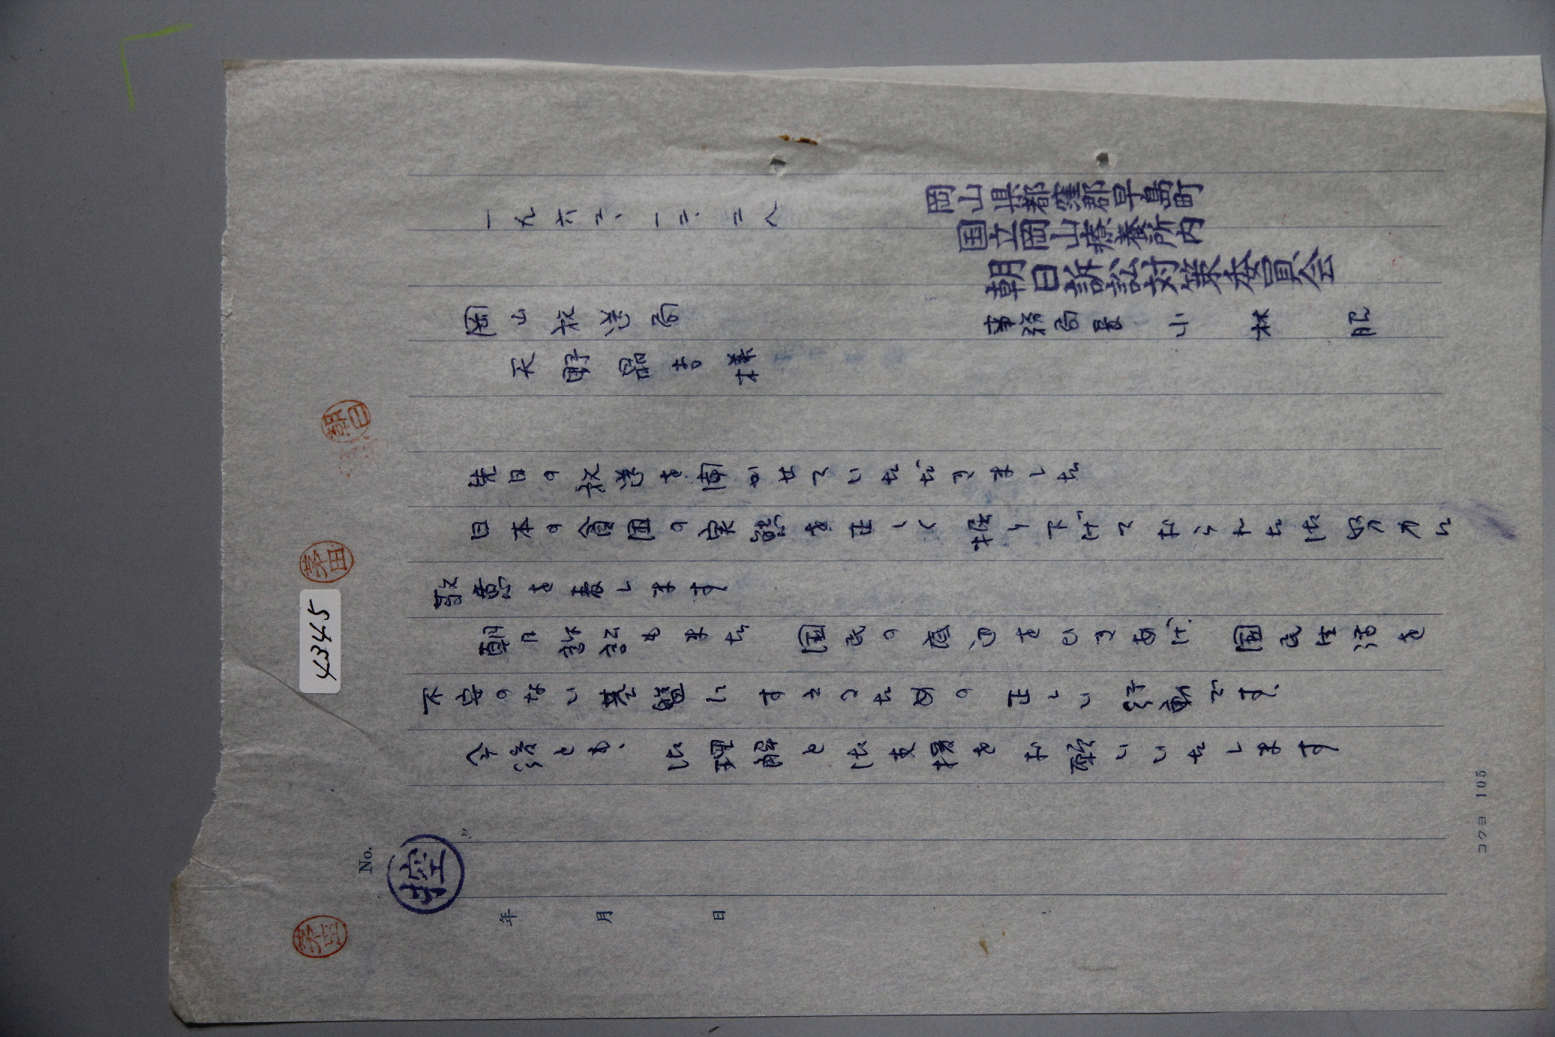 一九六二、一二、二八
岡山県都窪郡早島町
国立岡山療養所内
朝日訴訟対策委員会
岡山放送局
事務局長 小林
天野 吉様
先日の放送を聞かせていただきました
日本の貧困の実態を正しく 掘り下げておられた御努力に
敬意を表します
朝日訴訟もまた 国民の底辺をひきあげ、国民生活を
不安のない基盤に すえるための 正しい 動です、
今後とも、御理解と御支援をお願いいたします
控
No.
年 月 日
コクヨ 105
4345
朝日